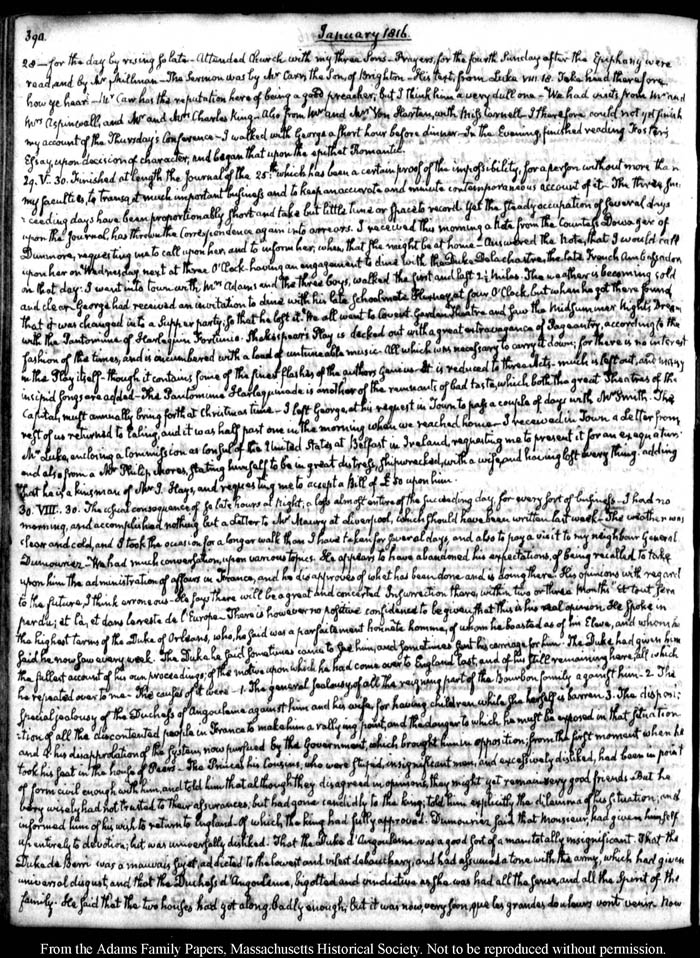 390.
January 1816.
28 — for the day by rising so late — Attended Church with my three Sons — Prayers, for the fourth Sunday after the Epiphany were
read, and by Mr Skillman — The Sermon was by Mr Carr, the Son, of Brighton — His text, from Luke VIII. 18. Take heed therefore
how ye hear — Mr Carr has the reputation here of being a good preacher, but I think him a very dull one — We had visits from Mr and
Mrs Aspinwall, and Mr and Mrs Charles King — Also from Mr and Mrs Von Harten, with Miss Carnell — I therefore could not yet finish
my account of the Thursday's Conference — I walked with George a short hour before dinner — In the Evening, finished reading Foster's
Essay upon decision of character, and began that upon the epithet Romantic.
29. V. 30. Finished at length the Journal of the 25th which has been a certain proof of the impossibility, for a person without more than
my faculties, to transact much important business and to keep an accurate and minute contemporaneous account of it — The three suc-
ceeding days have been proportionally short and take but little time or space to record. Yet the steady occupation of several days
upon the Journal, has thrown the Correspondence again into arrears. I received this morning a Note from the Countess Dowager of
Dunmore, requesting me to call upon her, and to inform her, when that she might be at home — Answered the Note, that I would call
upon her on Wednesday next at three O'Clock — having an engagement to dine with the Duke Delachastre, the late French Ambassador
on that day. I went into town with Mrs Adams and the three boys, walked the first and last 2½ Miles. The weather is becoming cold
and clear — George had received an invitation to dine with his late Schoolmate at four O'Clock, but when he got there found
that it was changed into a Supper party; so that he left it. We all went to Covent Garden Theatre and saw the Midsummer Night's Dream
with the Pantomime of Harlequin Fortunio. Shakespear's Play is decked out with a great extravagance of Pageantry, according to the
fashion of the times, and is encumbered with a load of untuneable music. All which was necessary to carry it down; for there is no interest
in the Play itself — though it contains some of the finest flashes of the author's Genius — It is reduced to three Acts — much is left out, and many
insipid songs are added — The Pantomime Harlequinade is another of the remnants of bad taste, which both the great Theatres of the
Capital, must annually bring forth at Christmas time — I left George, at his request in Town to pass a couple of days with Mr Smith. The
rest of us returned to Ealing, and it was half past one in the morning when we reached home — I received in Town a Letter from
Mr Luke, enclosing a Commission as Consul of the United States at Belfast in Ireland, requesting me to present it for an exequatur.
and also from a Mr Philip Mores, stating himself to be in great distress, Shipwrecked, with a wife, and having lost every thing. adding
that he is a kinsman of Mr I. Hays, and requesting me to accept a Bill of £50 upon him.
30. VIII. 30. The usual consequence of so late hours at Night, a loss almost entire of the succeeding day, for every sort of business — I had no
morning, and accomplished nothing but a Letter to Mr Maury at Liverpool, which should have been written last week — The weather was
clear and cold, and I took the occasion for a longer walk than I have taken for several days, and also to pay a visit to my neighbour General
Dumouriez — We had much conversation, upon various topics. He appears to have abandoned his expectations, of being recalled to take
upon him the administration of affairs in France, and he disapproves of what has been done and is doing there. His opinions with regard
to the future, I think erroneous — He says there will be a great and concerted Insurrection there, within two or three Months "et tout sera
perdu; et là, et dans le reste de l'Europe — There is however no positive confidence to be given that this is his real opinion. He spoke in
the highest terms of the Duke of Orleans, who, he said was a parfaitement honnête homme, of whom he boasted as of his Eleve, and whom he
said he now saw every week. The Duke he said sometimes came to see him, and sometimes sent his carriage for him. The Duke had given him
the fullest account of his own proceedings; of the motive upon which he had come over to England last, and of his still remaining here; all which
he repeated over to me — The causes of it were — 1. The general jealousy of all the reigning part of the Bourbon family against him — 2 The
special jealousy of the Duchess of Angouleme against him and his wife for having children, while she herself is barren. 3. The disposi-
tion of all the discontented people in France to make him a rallying point, and the danger to which he must be exposed in that situation
and 4. his disapprobation of the System now pursued by the Government, which brought him in opposition, from the first moment when he
took his seat in the house of Peers — The Princes his Cousins, who were stupid, insignificant men, and excessively disliked, had been in point
of form civil enough with him, and told him that although they disagreed in opinions, they might yet remain very good friends — But he
very wisely had not trusted to their assurances, but had gone candidly to the king; told him explicitly the dilemma of his Situation, and
informed him of his wish to return to England. of which the king had fully approved. Dumouriez said that Monsieur had given himself
up entirely to devotion; but was universally disliked. That the Duke d'Angouleme was a good sort of a man totally insignificant. That the
Duke de Berri was a mauvais sujet, addicted to the lowest and vilest debauchery, and had assumed a tone with the army, which had given
universal disgust, and that the Duchess d'Angouleme, bigotted and vindictive as she was had all the sense, and all the Spirit of the
family. He said that the two houses had got along badly enough; but it was now, very soon que les grandes douleurs vont venir. Now
From the Adams Family Papers, Massachusetts Historical Society. Not to be reproduced without permission.